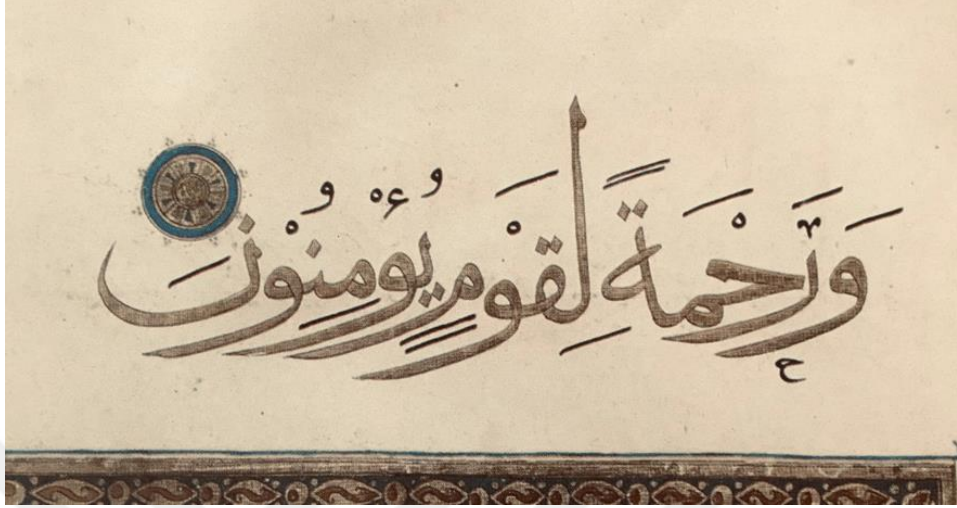 وَرَحْمَةً لِقَوْمٍ يُؤْمِنُونَ